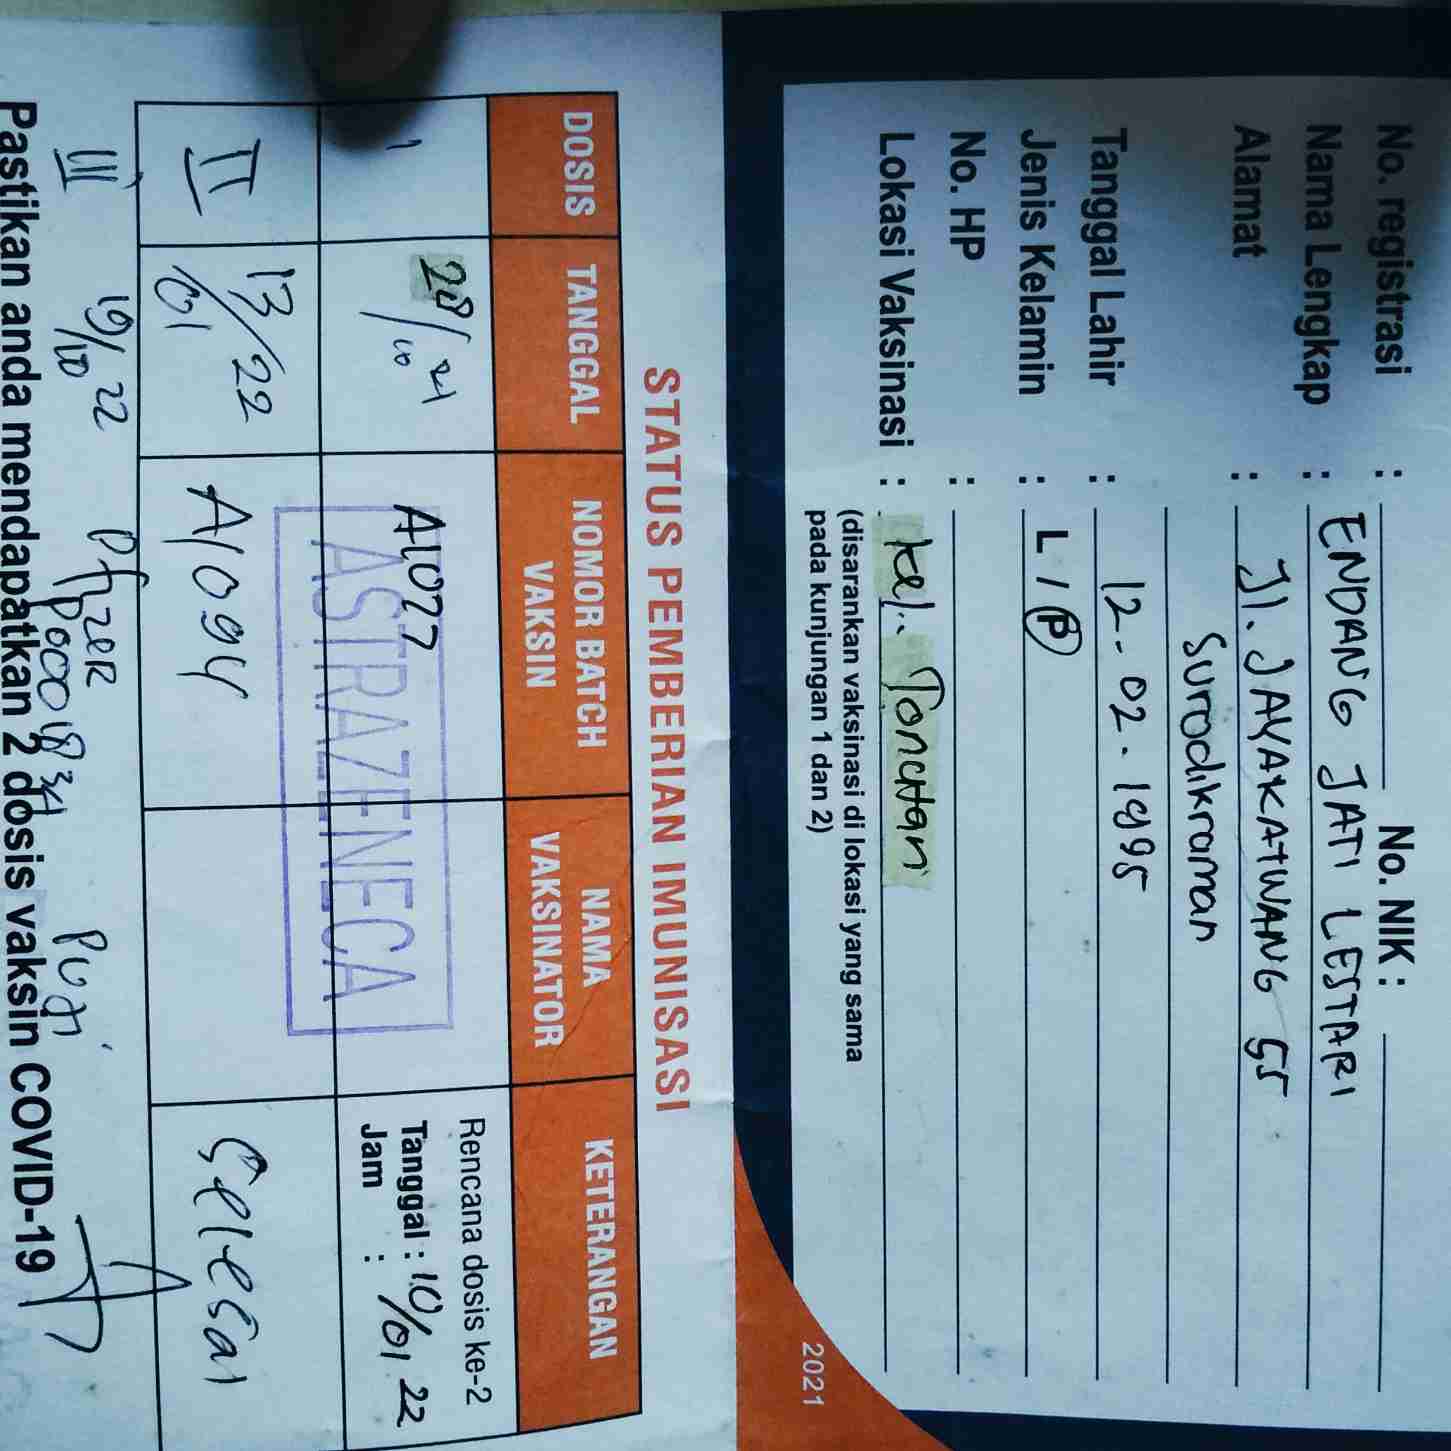 No. registrasi : No. NIK :
Nama Lengkap : ENDANG JATI LESTARI
Alamat : Jl. JAYAKATWANG 55
Surodikraman
Tanggal Lahir : 12-02-1995
Jenis Kelamin : L / P
No. HP :
Lokasi Vaksinasi : Kel. Tonatan
(disarankan vaksinasi di lokasi yang sama
pada kunjungan 1 dan 2)
2021
STATUS PEMBERIAN IMUNISASI
DOSIS TANGGAL NOMOR BATCH VAKSIN NAMA VAKSINATOR KETERANGAN
1 28/10 21 A1027 Rencana dosis ke-2
Tanggal : 10/01 22
Jam :
ASTRAZENECA
II 13/01 22 A1094 Selesai
III 19/10 22 Pfizer Puji
Pastikan anda mendapatkan 2 dosis vaksin COVID-19